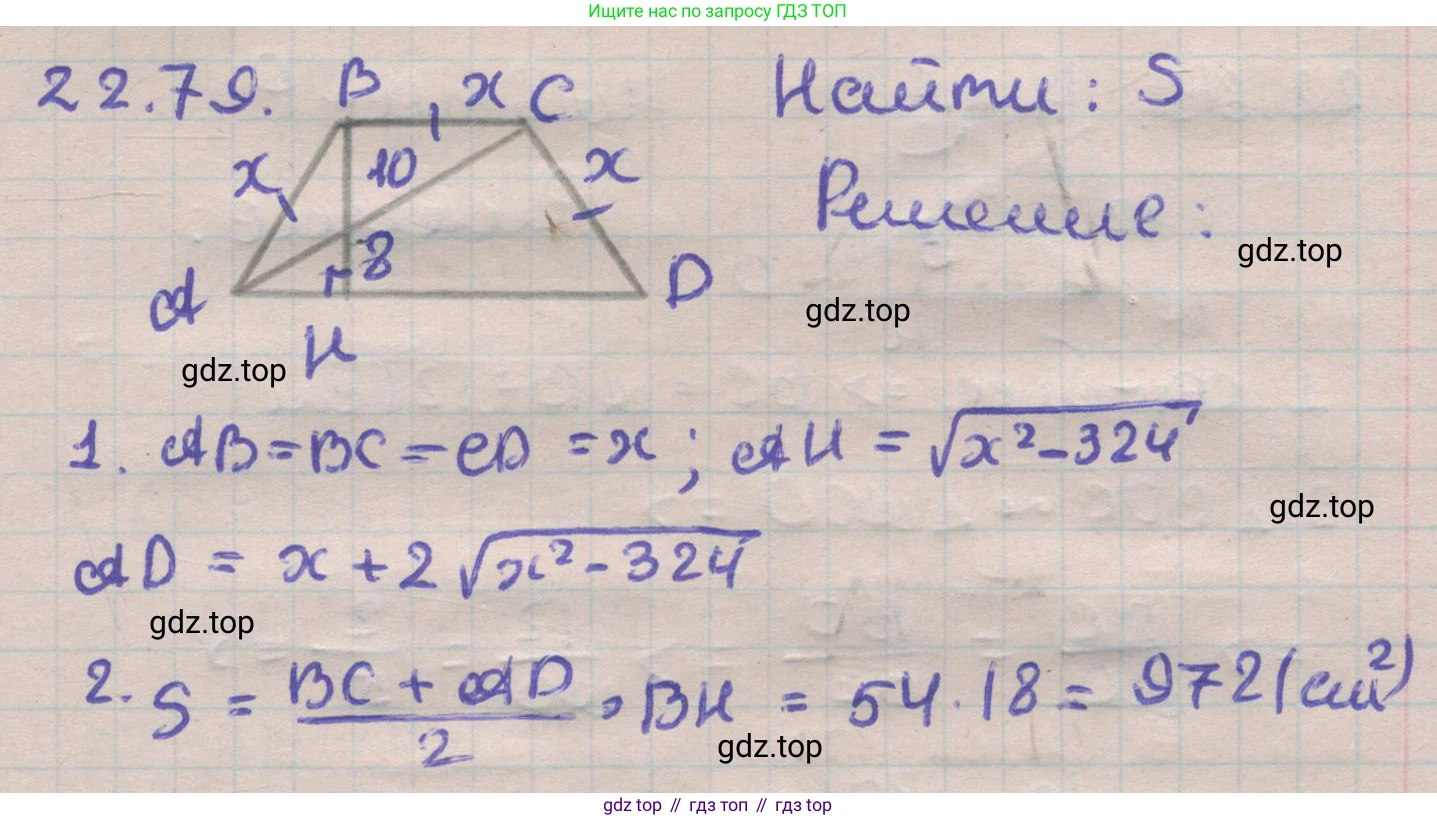 Ищите нас по запросу ГДЗ ТОП
22.79. B x C Найти: S
x 10 x
Решение:
8
gdz.top
A D
gdz.top
H
gdz.top
1. AB=BC=CD=x; AH = √x²-324
gdz.top
AD = x+2√x²-324
gdz.top
2. S = BC + AD / 2 · BH = 54·18= 972(см²)
gdz.top
gdz top // гдз топ // gdz top